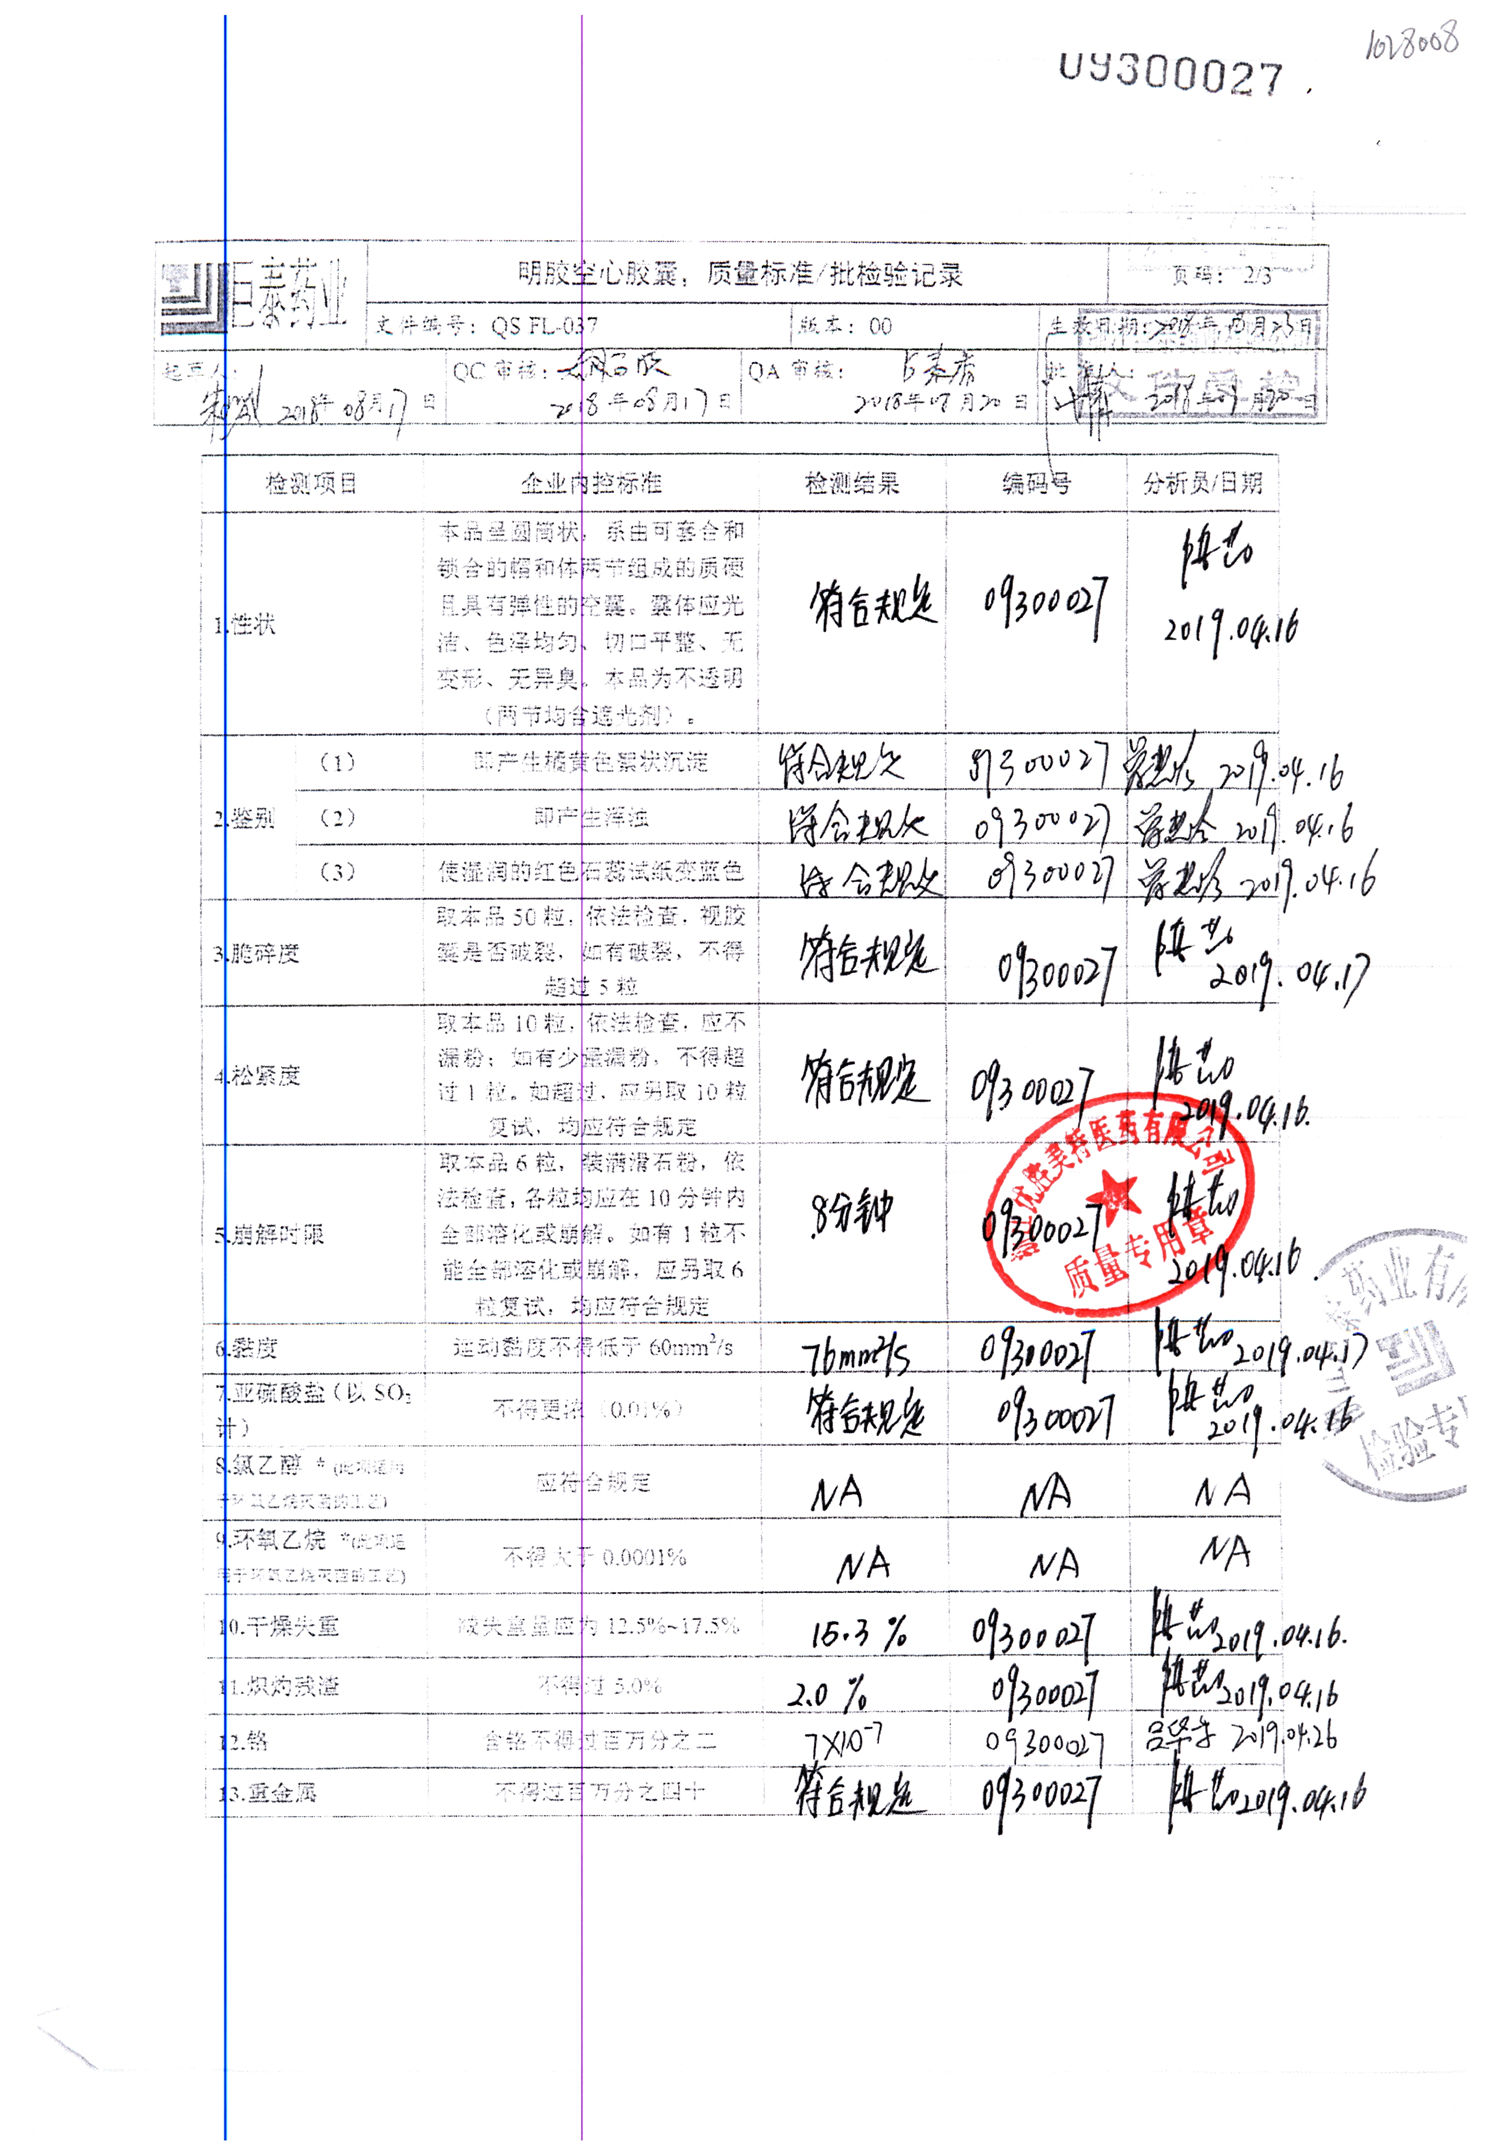 1028008
09300027
巨泰药业
明胶空心胶囊，质量标准/批检验记录
页码： 2/3
文件编号：QS FL-037
版本：00
生效日期：2018年08月23日
起草人：
QC 审核：
QA 审核：
批准人：
2018年08月17日
2018年08月17日
2018年08月20日
2018年08月20日
检测项目 企业内控标准 检测结果 编码号 分析员/日期
1.性状
本品呈圆筒状，系由可套合和
锁合的帽和体两节组成的质硬
且具有弹性的空囊。囊体应光
洁、色泽均匀、切口平整、无
变形、无异臭。本品为不透明
（两节均含遮光剂）。
符合规定 09300027
2019.04.16
2.鉴别
（1） 即产生橘黄色絮状沉淀 符合规定 09300027 2019.04.16
（2） 即产生浑浊 符合规定 09300027 2019.04.16
（3） 使湿润的红色石蕊试纸变蓝色 符合规定 09300027 2019.04.16
3.脆碎度
取本品 50 粒，依法检查，视胶
囊是否破裂，如有破裂，不得
超过 5 粒
符合规定 09300027 2019.04.17
4.松紧度
取本品 10 粒，依法检查，应不
漏粉；如有少量漏粉，不得超
过 1 粒。如超过，应另取 10 粒
复试，均应符合规定
符合规定 09300027 2019.04.16.
5.崩解时限
取本品 6 粒，装满滑石粉，依
法检查，各粒均应在 10 分钟内
全部溶化或崩解。如有 1 粒不
能全部溶化或崩解，应另取 6
粒复试，均应符合规定
8分钟 09300027 2019.04.16.
优胜美特医药有限公司
质量专用章
6.黏度 运动黏度不得低于 60mm²/s 76mm²/s 09300027 2019.04.17
7.亚硫酸盐（以 SO₂
计）
不得更浓（0.01%） 符合规定 09300027 2019.04.16
8.氯乙醇 *(此项适用
于环氧乙烷灭菌的工艺)
应符合规定 NA NA NA
9.环氧乙烷 *(此项适
用于环氧乙烷灭菌的工艺)
不得大于 0.0001% NA NA NA
10.干燥失重 减失重量应为 12.5%~17.5% 15.3% 09300027 2019.04.16.
11.炽灼残渣 不得过 5.0% 2.0% 09300027 2019.04.16
12.铬 含铬不得过百万分之二 7×10⁻⁷ 09300027 2019.04.26
13.重金属 不得过百万分之四十 符合规定 09300027 2019.04.16
泰药业有
检验专用